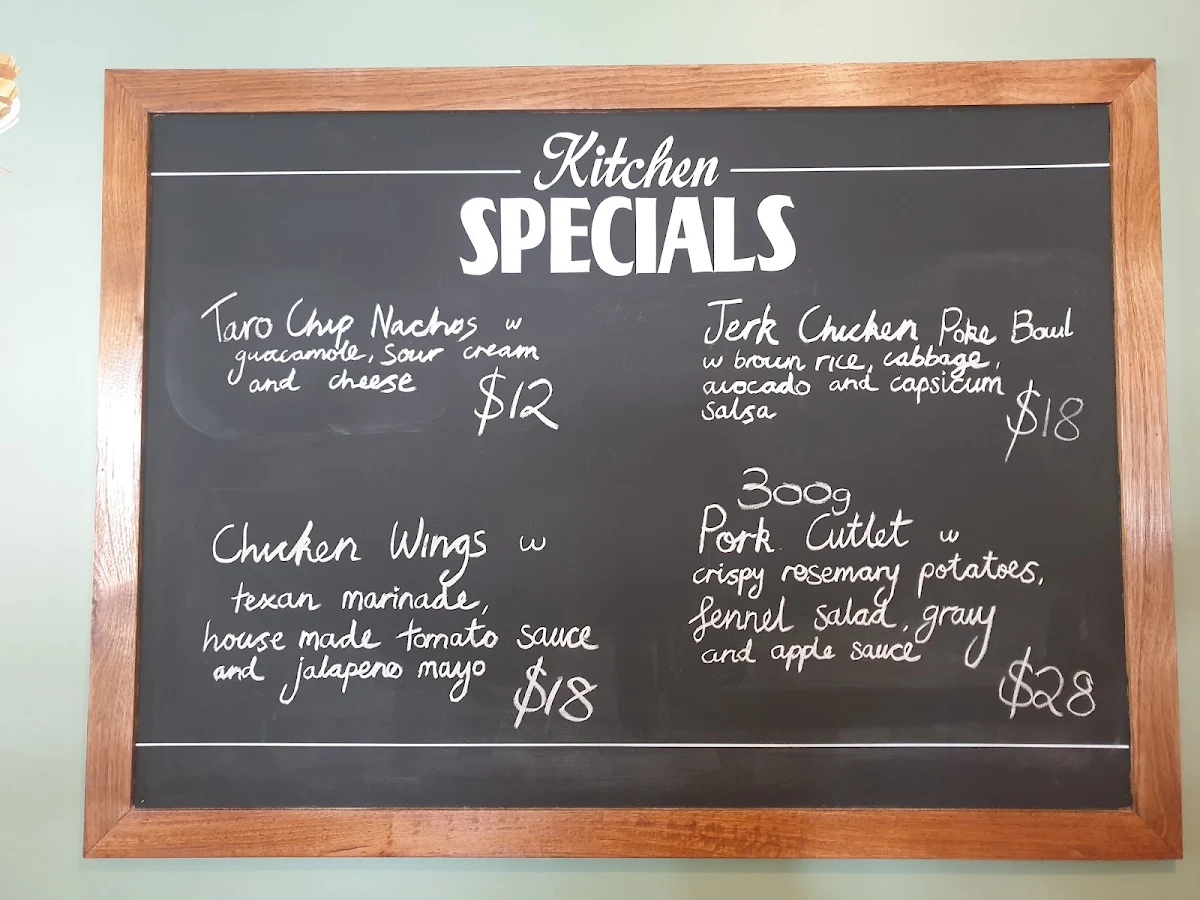 Kitchen
SPECIALS
Taro Chip Nachos w
guacamole, sour cream
and cheese
$12
Jerk Chicken Poke Bowl
w brown rice, cabbage,
avocado and capsicum
salsa
$18
Chicken Wings w
texan marinade,
house made tomato sauce
and jalapeno mayo
$18
300g
Pork Cutlet w
crispy rosemary potatoes,
fennel salad, gravy
and apple sauce
$28